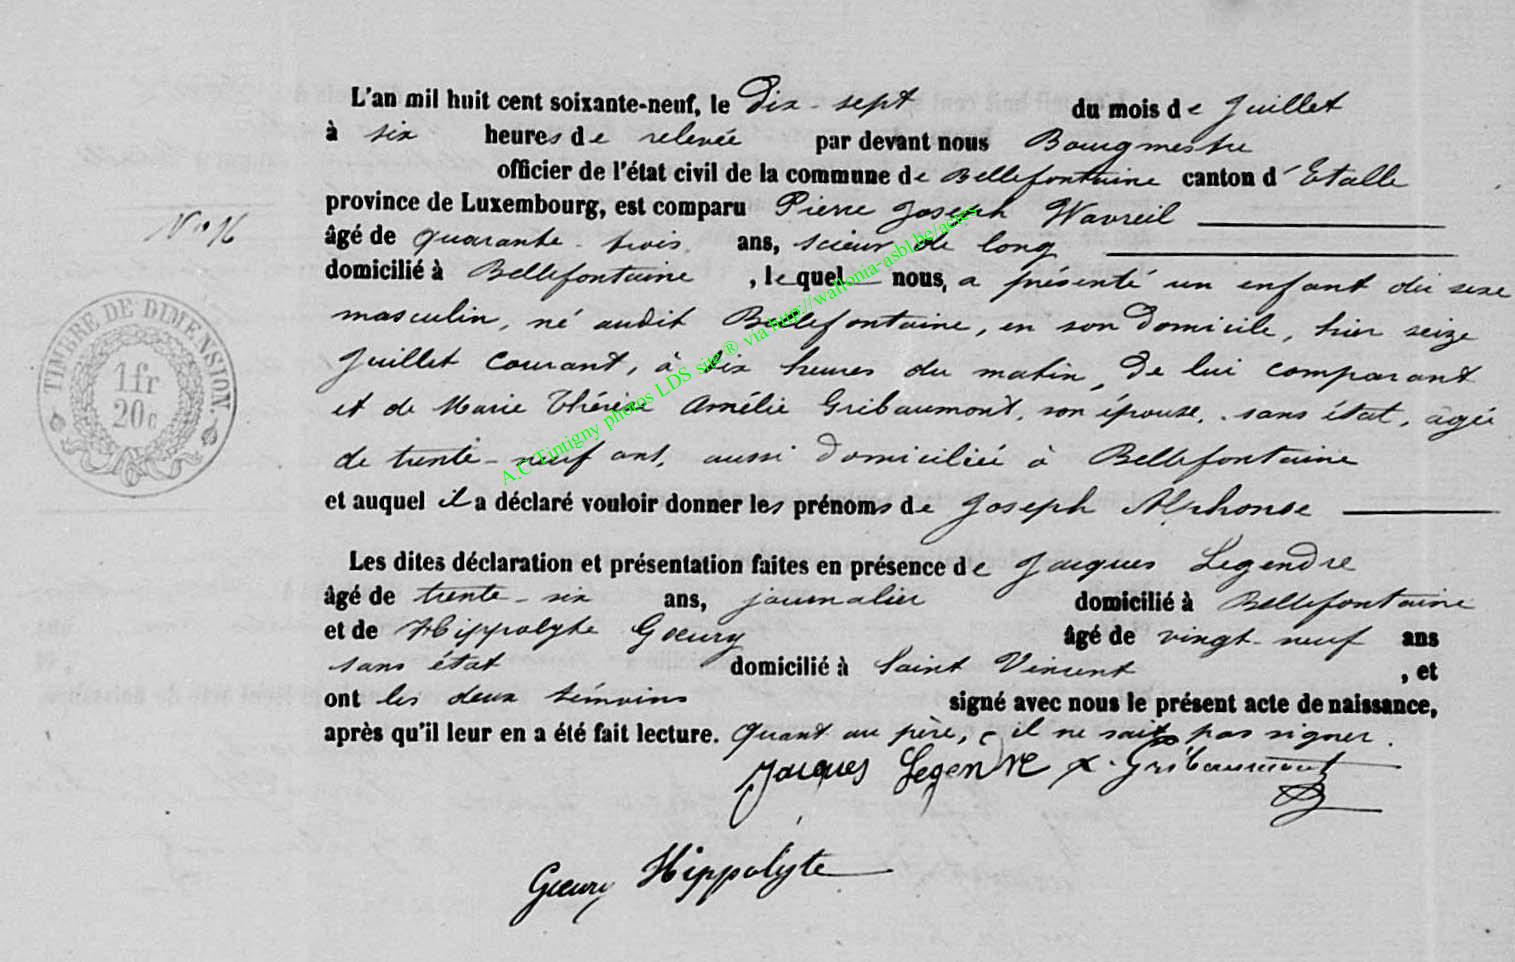 L'an mil huit cent soixante-neuf, le Dix-sept du mois de Juillet
à six heures de relevée par devant nous Bourgmestre
officier de l'état civil de la commune de Bellefontaine canton d'Etalle
province de Luxembourg, est comparu Pierre Joseph Wavreil
âgé de quarante-trois ans, scieur de long
domicilié à Bellefontaine, lequel nous, a présenté un enfant du sexe
masculin, né audit Bellefontaine, en son domicile, hier seize
Juillet courant, à dix heures du matin, de lui comparant
et de Marie Thérèse Amélie Gribaumont, son épouse, sans état, âgée
de trente-neuf ans, aussi domiciliée à Bellefontaine
et auquel il a déclaré vouloir donner les prénoms de Joseph Alphonse
Les dites déclaration et présentation faites en présence de Jacques Legendre
âgé de trente-six ans, journalier domicilié à Bellefontaine
et de Hippolyte Goeury âgé de vingt-neuf ans
sans état domicilié à Saint Vincent, et
ont les deux témoins signé avec nous le présent acte de naissance,
après qu'il leur en a été fait lecture. Quant au père, il ne sait pas signer.
Jacques Legendre x. Gribaumont
Goeury Hippolyte
TIMBRE DE DIMENSION.
1 fr
20 c
A.C Tintigny photos LDS site ® via http://wallonia-asbl.be/actes